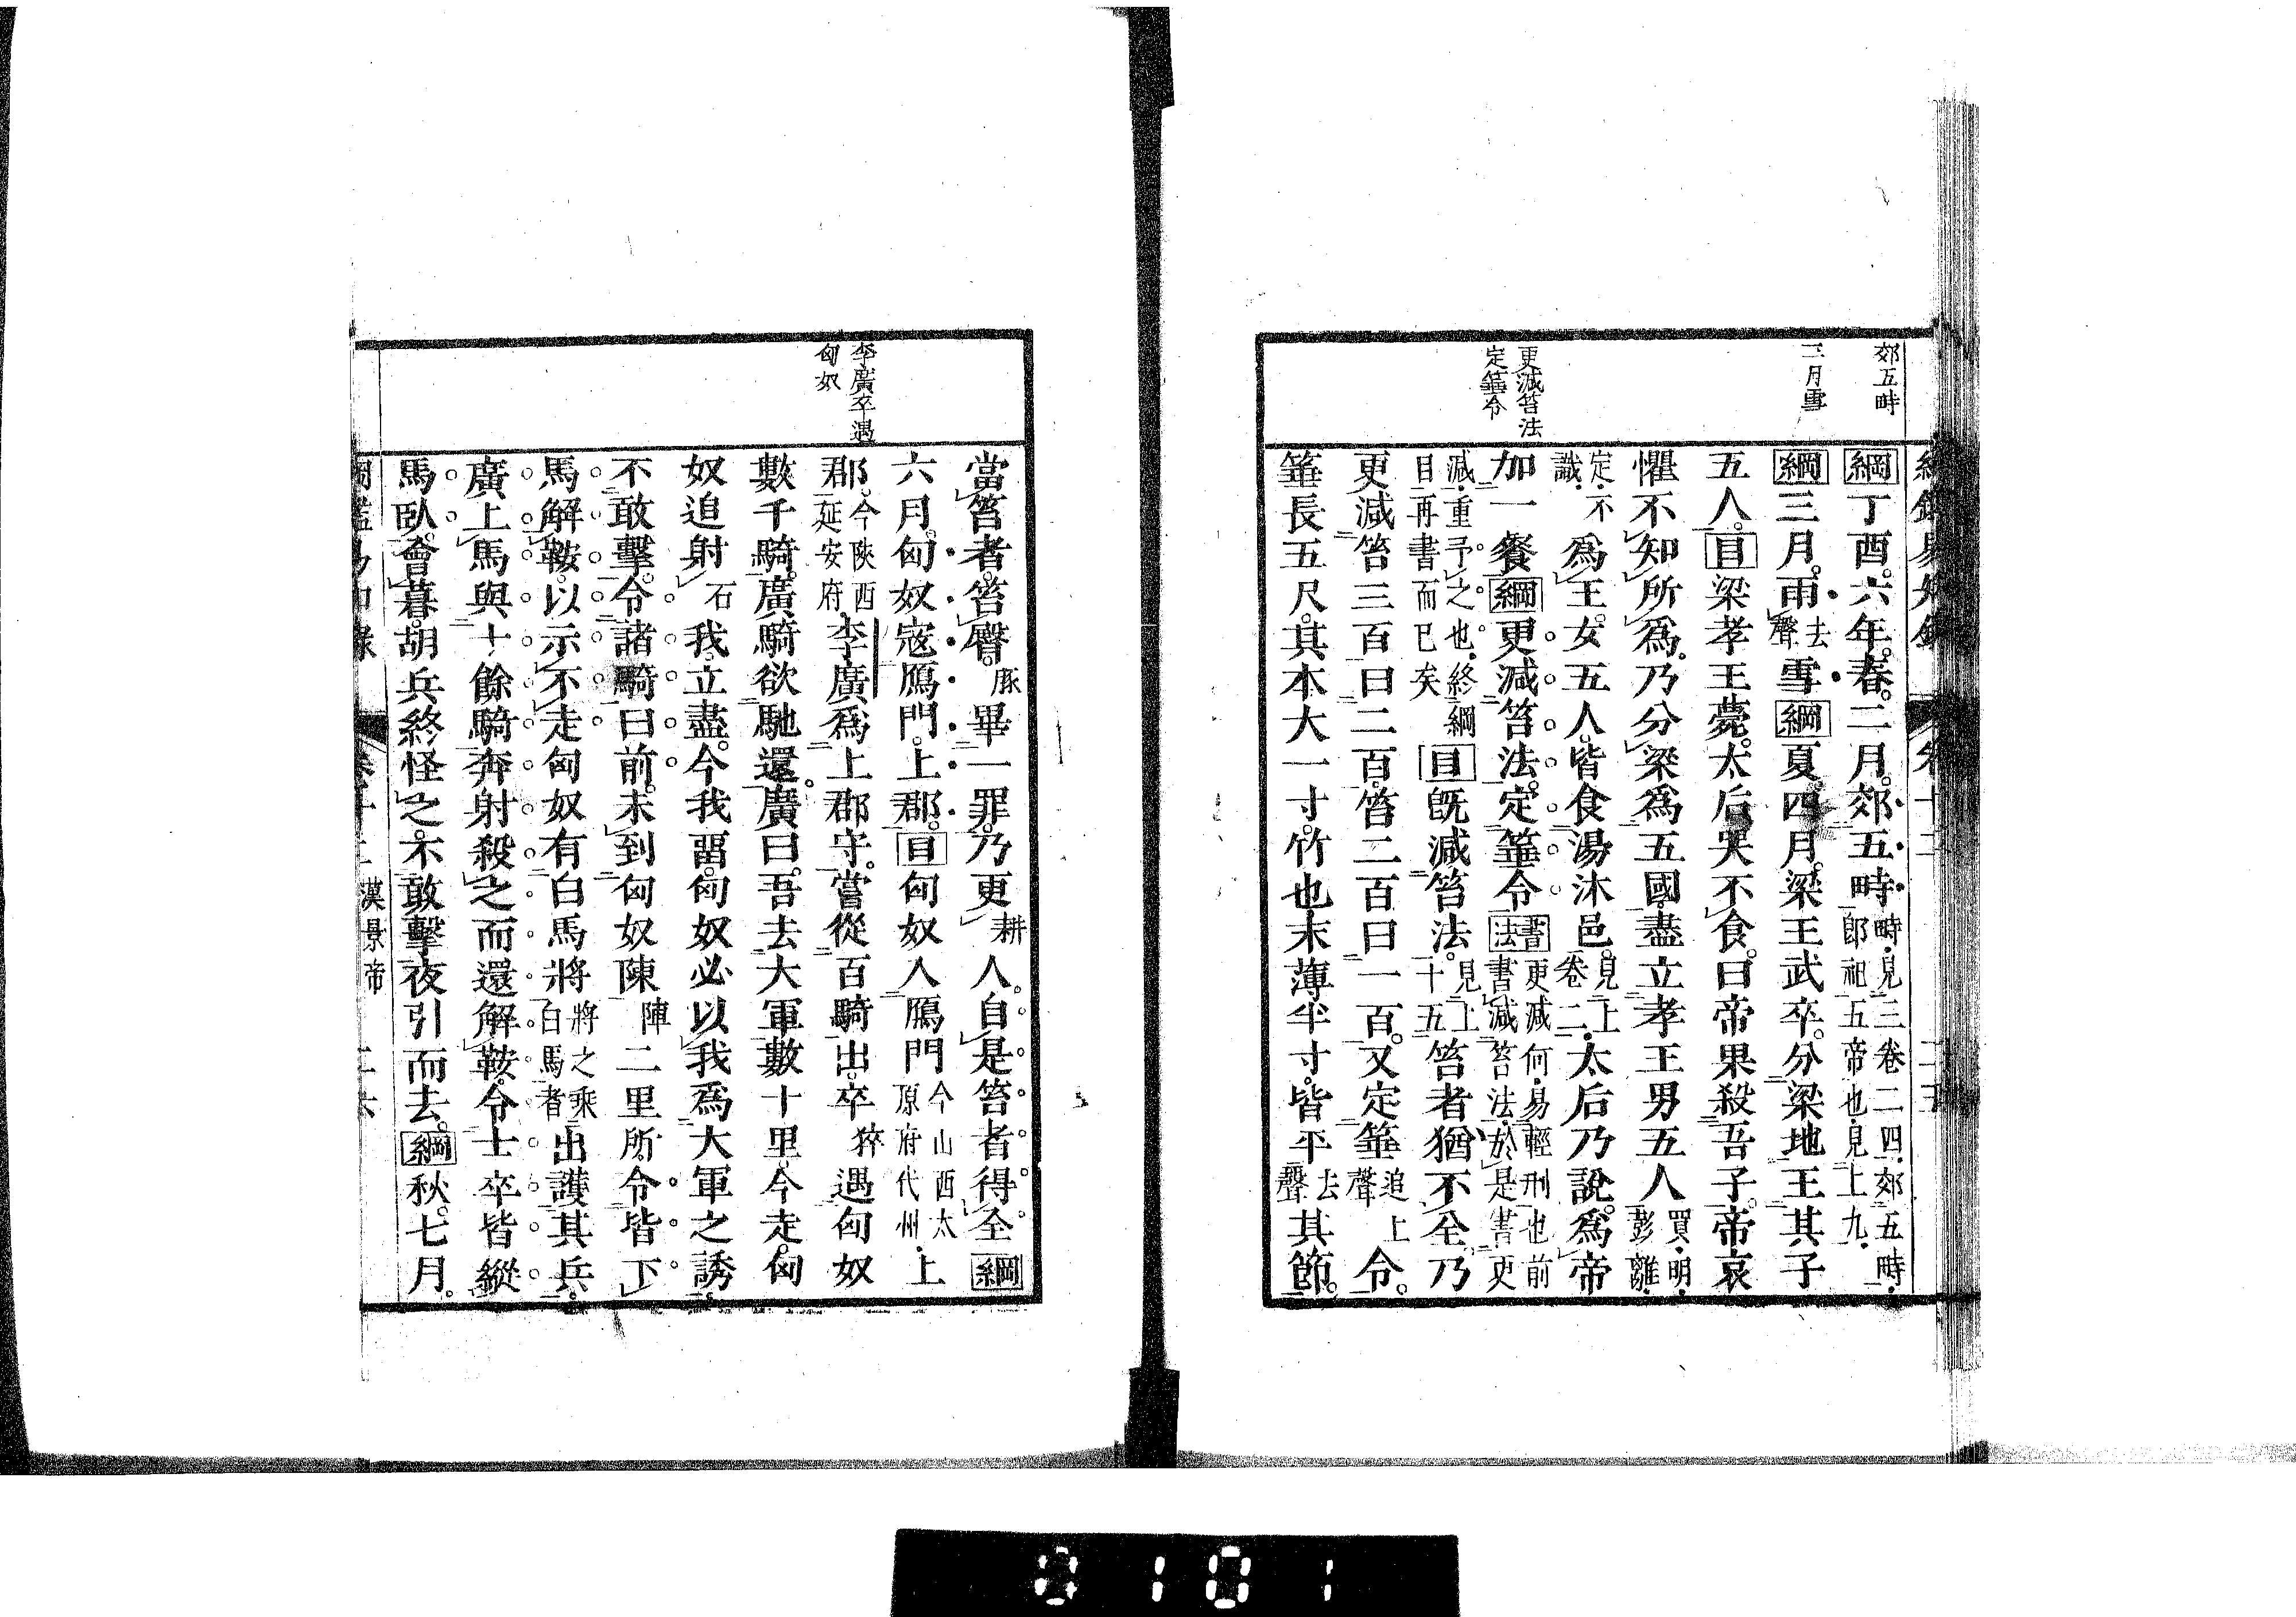 郊五畤
三月雪
更減笞法
定箠令
綱鑑易知錄 卷十二 二五
綱丁酉。六年。春。二月。郊五畤畤。見三卷二四。郊五畤。即祀五帝也。見上九。
綱三月。雨去聲雪綱夏。四月。梁王武卒。分梁地王其子
五人。目梁孝王薨。太后哭不食。曰帝果殺吾子。帝哀
懼不知所爲。乃分梁爲五國。盡立孝王男五人買。明。彭離。
定。不識。爲王。女五人。皆食湯沐邑。見上卷二。太后乃說。爲帝
加一餐綱更減笞法。定箠令書法更減何。易輕刑也前書減笞法。於是書更
減。重予之也。終綱目再書而已矣目旣減笞法。見上十五笞者猶不全。乃
更減笞三百曰二百。笞二百曰一百。又定箠追上聲令。
箠長五尺。其本大一寸。竹也末薄半寸。皆平去聲其節。
李廣卒遇
匈奴
當笞者。笞臀。豚畢一罪。乃更耕人。自是笞者得全綱
六月。匈奴寇鴈門。上郡。目匈奴入鴈門今山西太原府代州。上
郡。今陝西延安府。李廣爲上郡守。嘗從百騎出。卒猝遇匈奴
數千騎。廣騎欲馳還。廣曰。吾去大軍數十里。今走。匈
奴追射石我立盡。今我留。匈奴必以我爲大軍之誘。
不敢擊。令諸騎曰前。未到匈奴陳陣二里所。令皆下
馬解鞍。以示不走匈奴有白馬將將之乘白馬者出護其兵。
廣上馬與十餘騎奔射殺之而還解鞍。令士卒皆縱
馬臥。會暮。胡兵終怪之。不敢擊。夜引而去。綱秋。七月。
綱鑑易知錄 卷十二 漢景帝 二六
0101